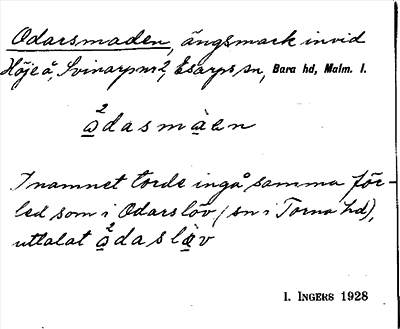 Odarsmaden, ängsmark invid
Höje å, Svinarp nr 2, Esarps sn, Bara hd, Malm. l.
2
ådasmàen
I namnet torde ingå samma för-
led som i Odarslöv (sn i Torna hd),
uttalat ²ådaslàv
I. INGERS 1928